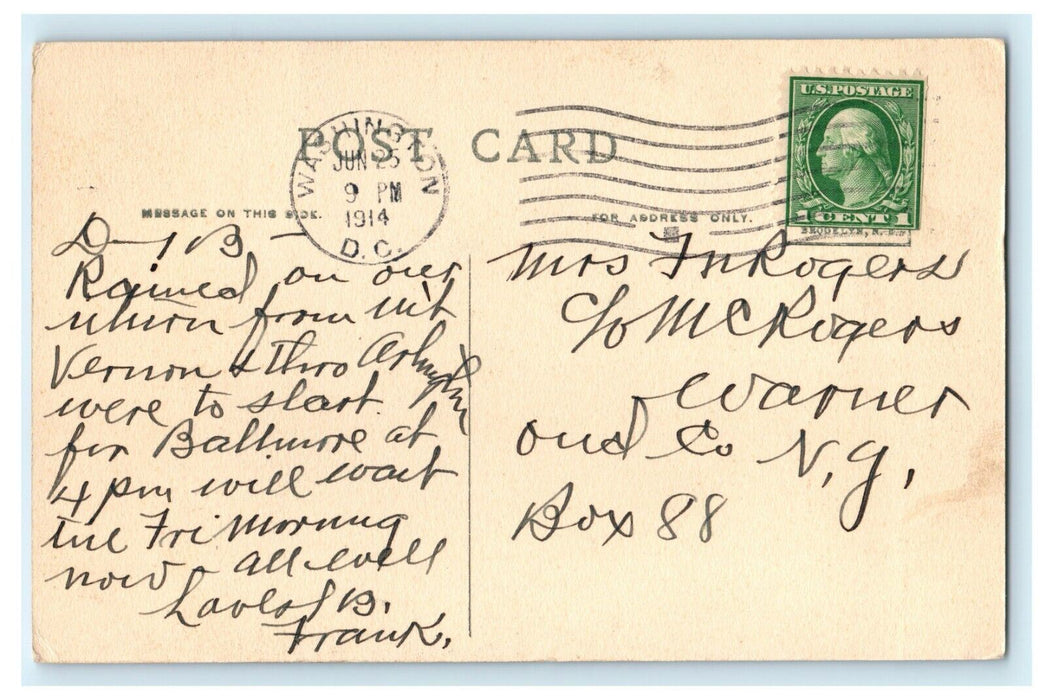 POST CARD
WASHINGTON
JUN 25
9 PM
1914
D.C.
U.S. POSTAGE
1 CENT 1
MESSAGE ON THIS SIDE.
FOR ADDRESS ONLY.
B —
Rained on our
return from Mt
Vernon & thro Arlington
were to start
for Baltimore at
4 pm will wait
till Fri Morning
now – all well
Love B.
Frank.
Mrs F N Rogers
c/o M C Rogers
Warner
Ond Co N.Y.
Box 88